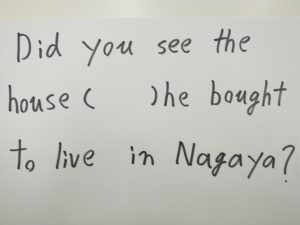 Did you see the
house (     ) he bought
to live in Nagaya?